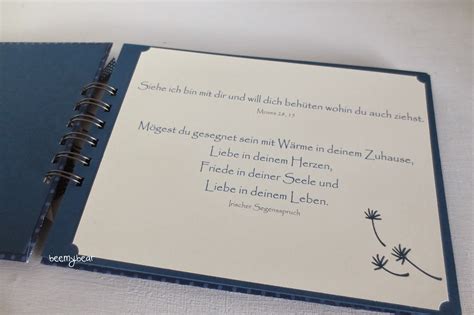 Siehe ich bin mit dir und will dich behüten wohin du auch ziehst.
Moses 28, 15
Mögest du gesegnet sein mit Wärme in deinem Zuhause,
Liebe in deinem Herzen,
Friede in deiner Seele und
Liebe in deinem Leben.
Irischer Segensspruch
beemybear